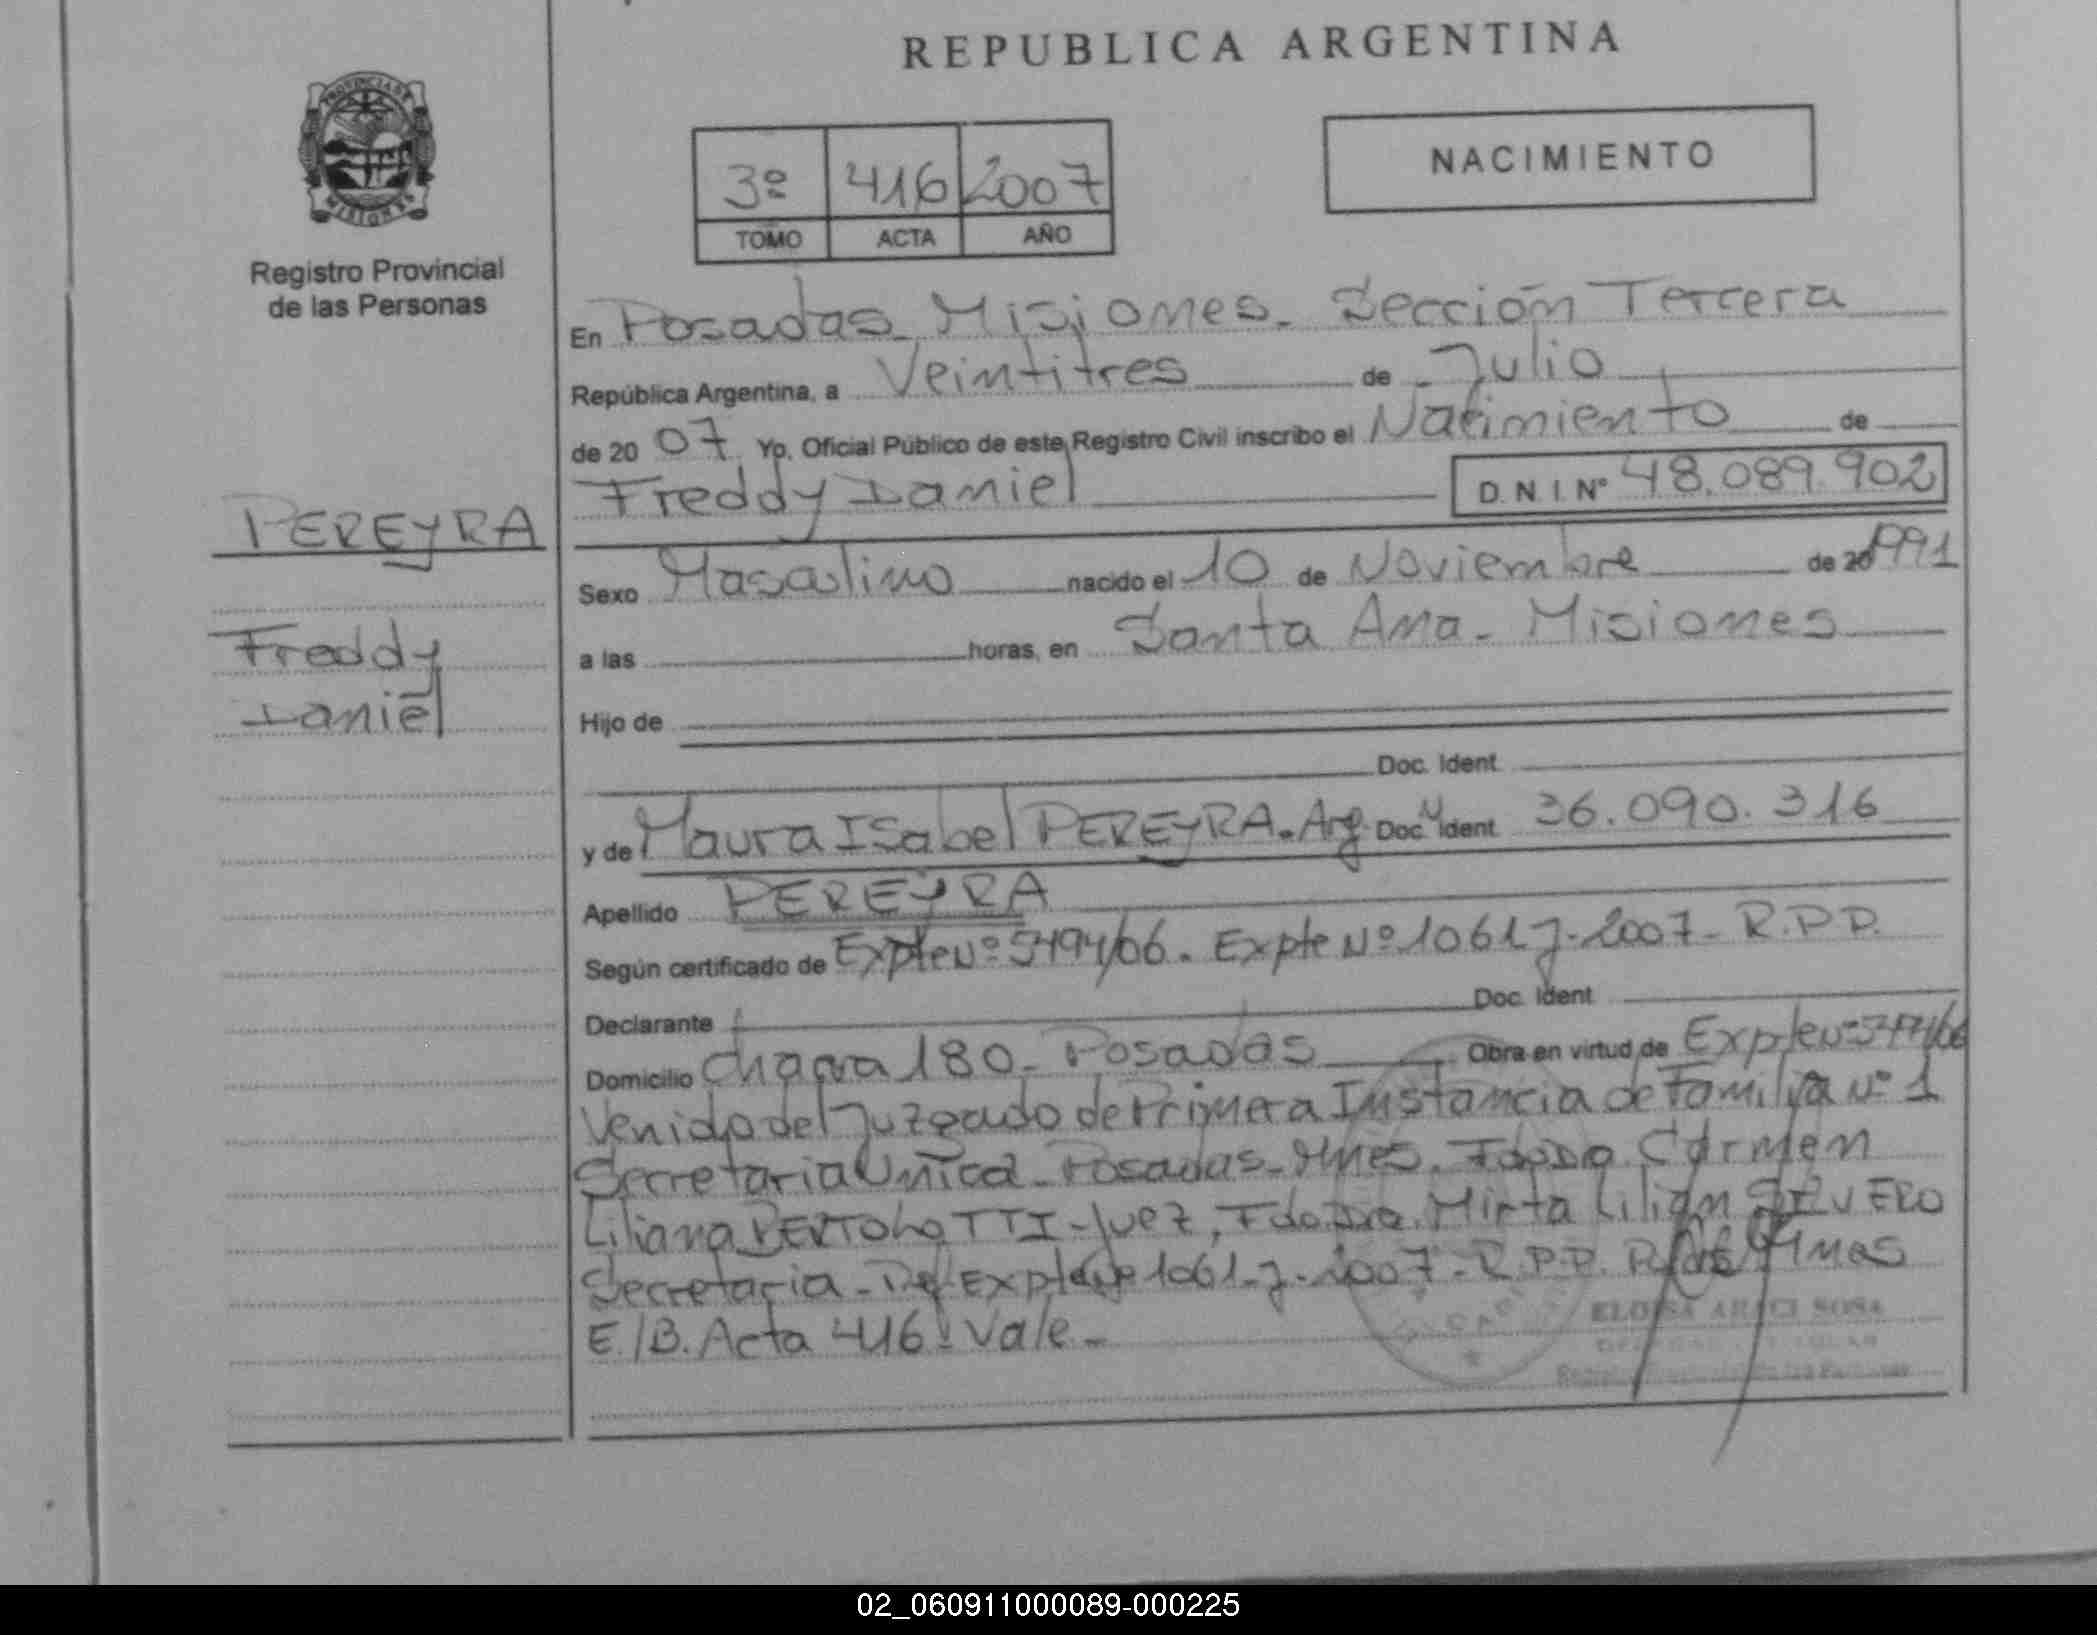 REPUBLICA ARGENTINA
PROVINCIA DE
MISIONES
Registro Provincial
de las Personas
3º 416 2007
TOMO ACTA AÑO
NACIMIENTO
En Posadas Misiones. Sección Tercera
República Argentina, a Veintitres de Julio
de 20 07 Yo, Oficial Público de este Registro Civil inscribo el Nacimiento de
Freddy Daniel D.N.I. Nº 48.089.902
PEREYRA
Freddy
Daniel
Sexo Masculino nacido el 10 de Noviembre de 20 1991
a las horas, en Santa Ana - Misiones
Hijo de
Doc. Ident.
y de Maura Isabel PEREYRA. Arg. Doc. Ident. 36.090.316
Apellido PEREYRA
Según certificado de Expte Nº 5494/06. Expte Nº 1061 J-2007- R.P.P.
Declarante Doc. Ident.
Domicilio Chacra 180 - Posadas Obra en virtud de Expte Nº
Venido del Juzgado de Primera Instancia de Familia Nº 1
Secretaria Unica - Posadas - Mnes. Carmen
Liliana BERTOLOTTI - Juez, Fdo Dra. Mirta Lilian SILVERO
Secretaria - Expte 1061-J-2007- R.P.P. Mnes
E/B. Acta 416: Vale -
ELOISA ARACI SOSA
02_060911000089-000225